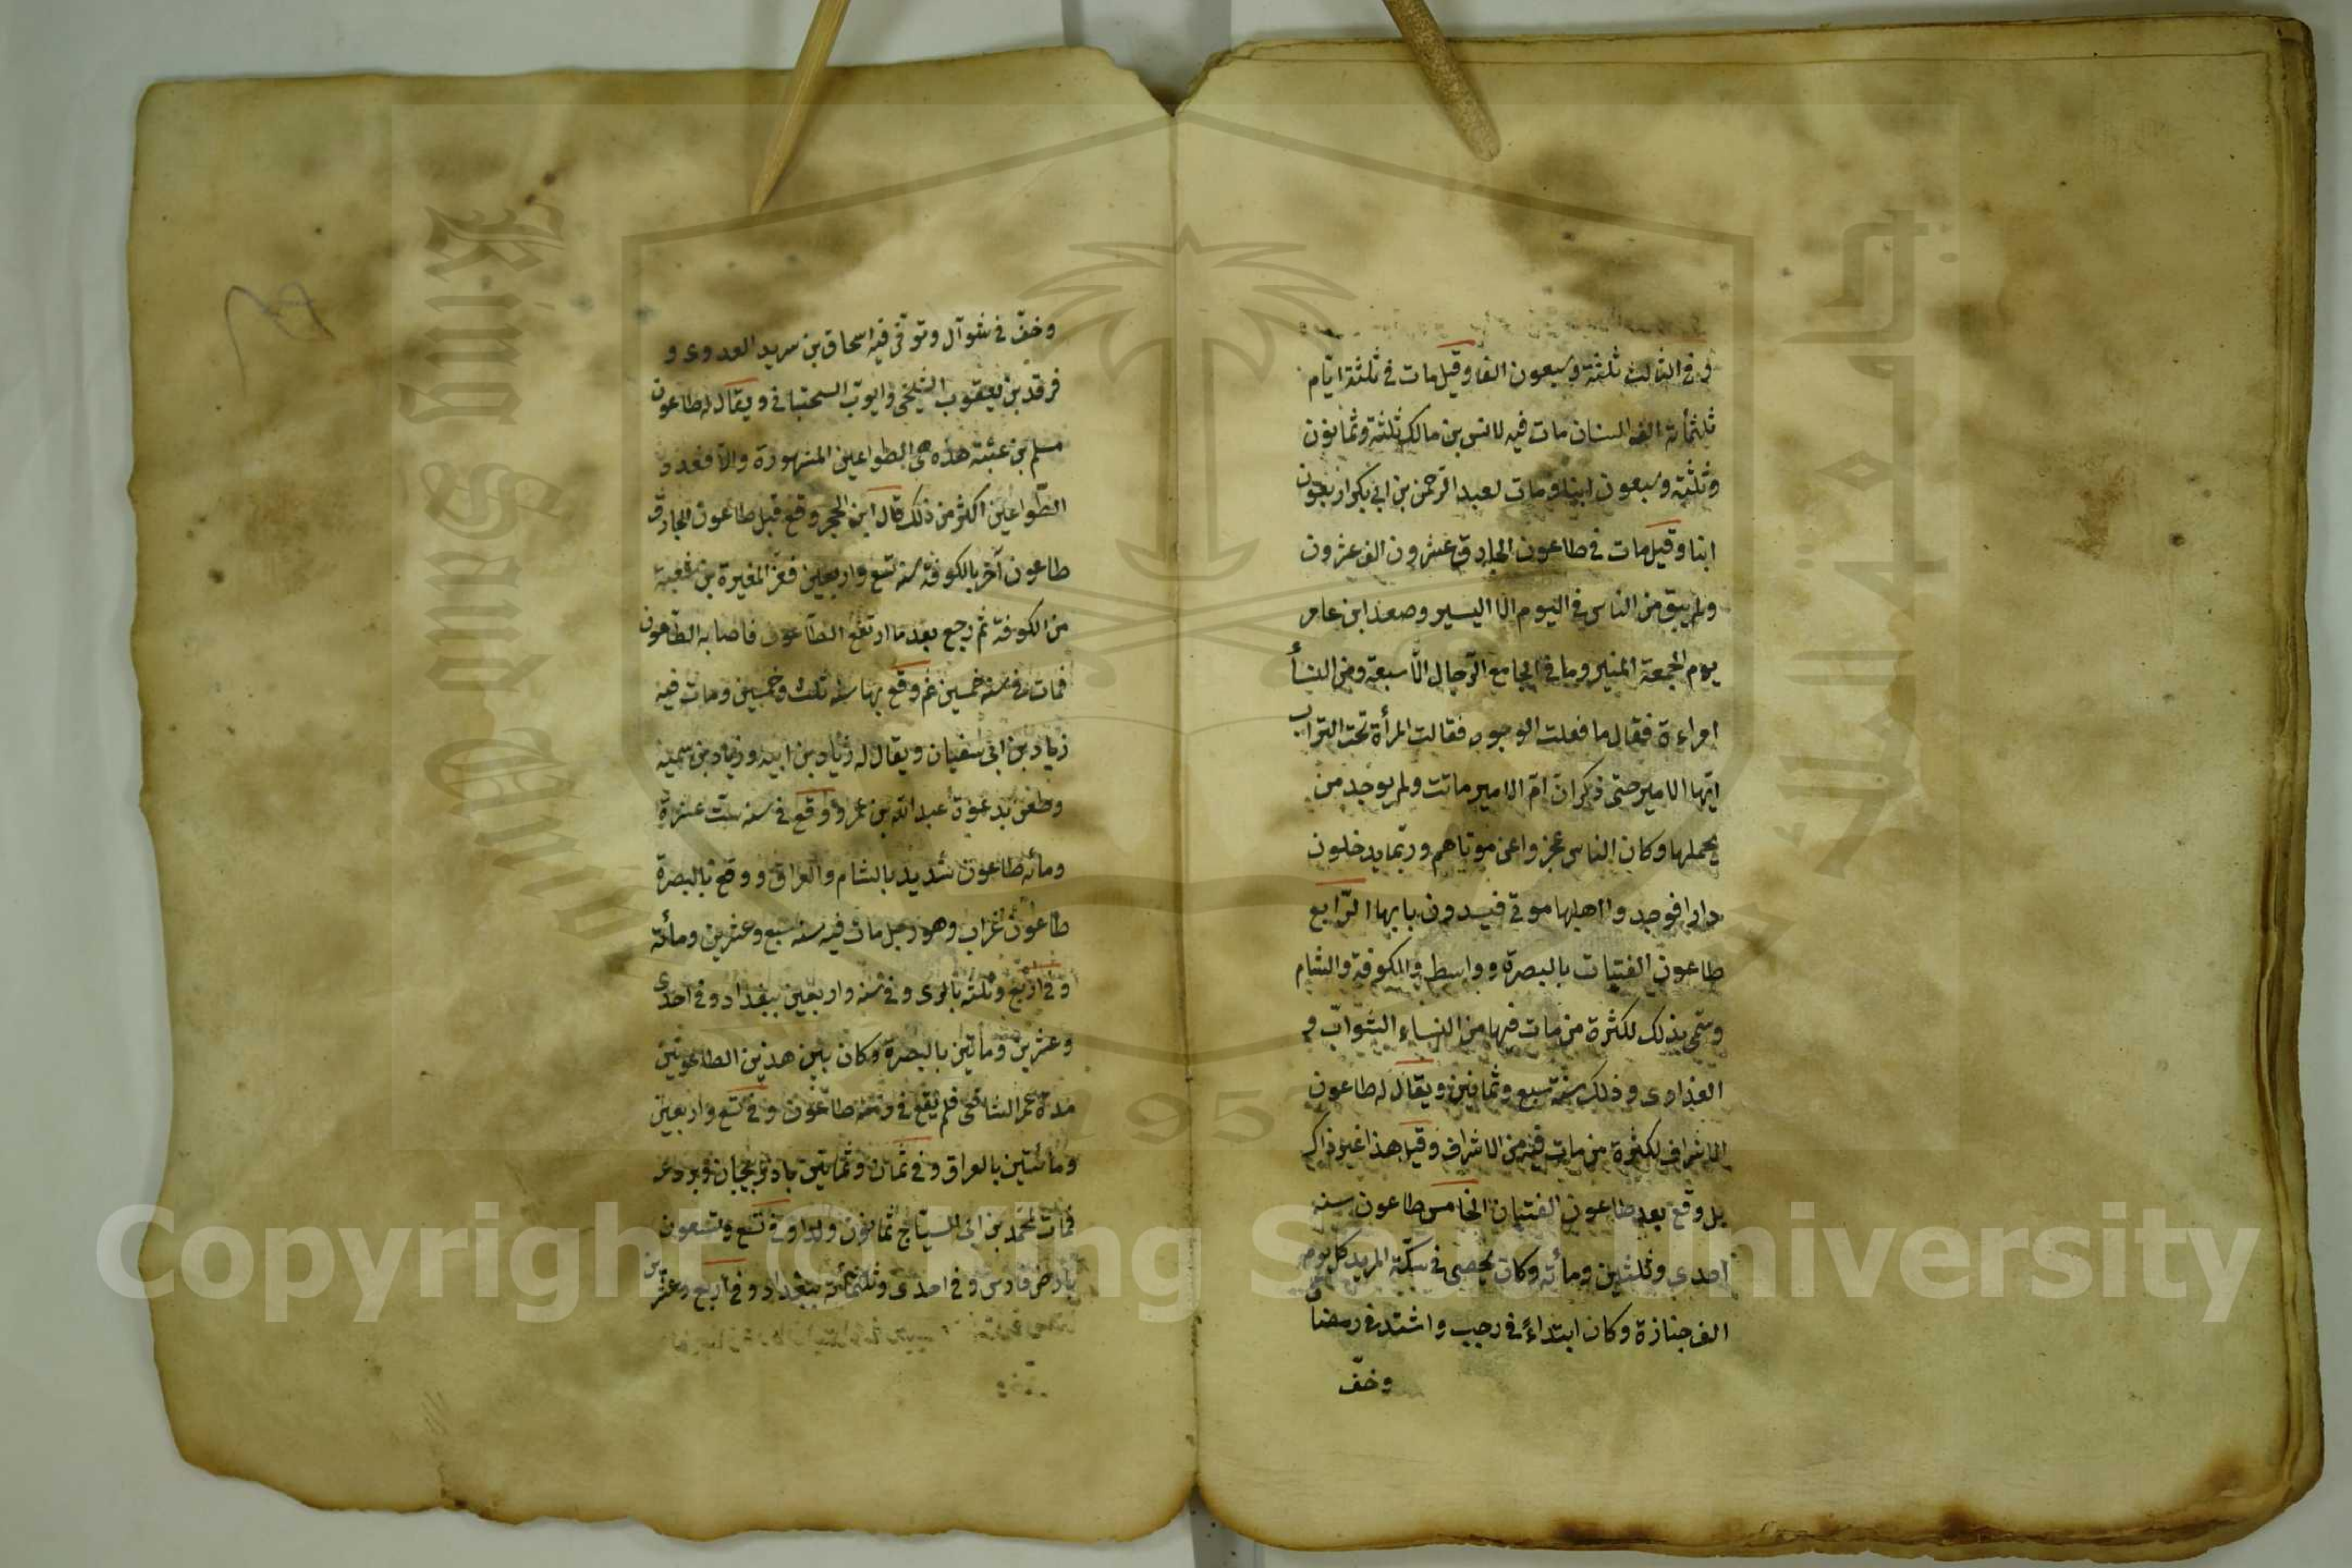 وفي الثالث ثلثة وسبعون الفا وقيل مات في ثلثة ايام
ثلثمأئة الف انسان مات فيه لانس بن مالك ثلثة وثمانون
وثلثة وسبعون ابنا ومات لعبد الرحمن بن ابي بكر اربعون
ابنا وقيل مات في طاعون الجارق عشرون الف عشرون
ولم يبق من الناس في اليوم الا اليسير وصعد ابن عامر
يوم الجمعة المنبر وما في الجامع الرّجال الّا سبعة ومن النسأ
امراءة فقال ما فعلت الوجوه فقالت المرأة تحت التراب
ايّها الامير حتى ذكر انّ امّ الامير ماتت ولم يوجد من
يحملها وكان الناس عجزوا عن موتاهم وربّما يدخلون
دارا فوجدوا اهلها موتى فيسدون بابها الرّابع
طاعون الفتيات بالبصرة وواسط والكوفة والشام
وسمّي بذلك لكثرة من مات فيها من النساء الشوابّ و
العذاوى وذلك سنة سبع وثمانين ويقال له طاعون
الاشراف لكثرة من مات فيه من الاشراف وقيل هذا غير ذاك
بل وقع بعد طاعون الفتيان الخامس طاعون سنة
احدى وثلثين ومأئة وكان يحصى في سكّة المربد كل يوم
الف جنازة وكان ابتداءً في رجب واشتد في رمضان
وخفّ
وخفّ في شوآل وتوقّى فيه اسحاق بن سريد العدوى و
فرقد بن يعقوب السّبخي وايوب السختياني ويقال له طاعون
مسلم بن عتبة هذه هي الطواعين المشهورة والا فعدد
الطّواعين اكثر من ذلك قال ابن الحجر وقع قبل طاعون الجارق
طاعون آخر بالكوفة سنة تسع واربعين ففرّ المغيرة بن شعبة
من الكوفة ثم رجع بعد ما ارتفع الطّاعون فاصابه الطّاعون
فمات في سنة خمسين ثم وقع بها سنة ثلث وخمسين ومات فيه
زياد بن ابي سفيان ويقال له زياد بن ابيه وزياد بن سمية
وطعن بدعوة عبد الله بن عمر ووقع في سنة ستّ عشرة
ومأئة طاعون شديد بالشام والعراق ووقع بالبصرة
طاعون غراب وهو رجل مات فيه سنة سبع وعشرين ومأئة
وفي اربع وثلثة بالرى وفي سنة واربعين ببغداد وفي احدى
وعشرين ومأتين بالبصرة وكان بين هذين الطاعونين
مدة عمر الشافعى فلم يقع في وقته طاعون وفي تسع واربعين
ومأئتين بالعراق وفي ثمان وثمانين باذربيجان وبردعة
فمات لمحمد بن ابي السياج ثمانون ولدا وفي تسع وتسعون
بارض فارس وفي احدى وثلثمأئة ببغداد وفي اربع وعشرين